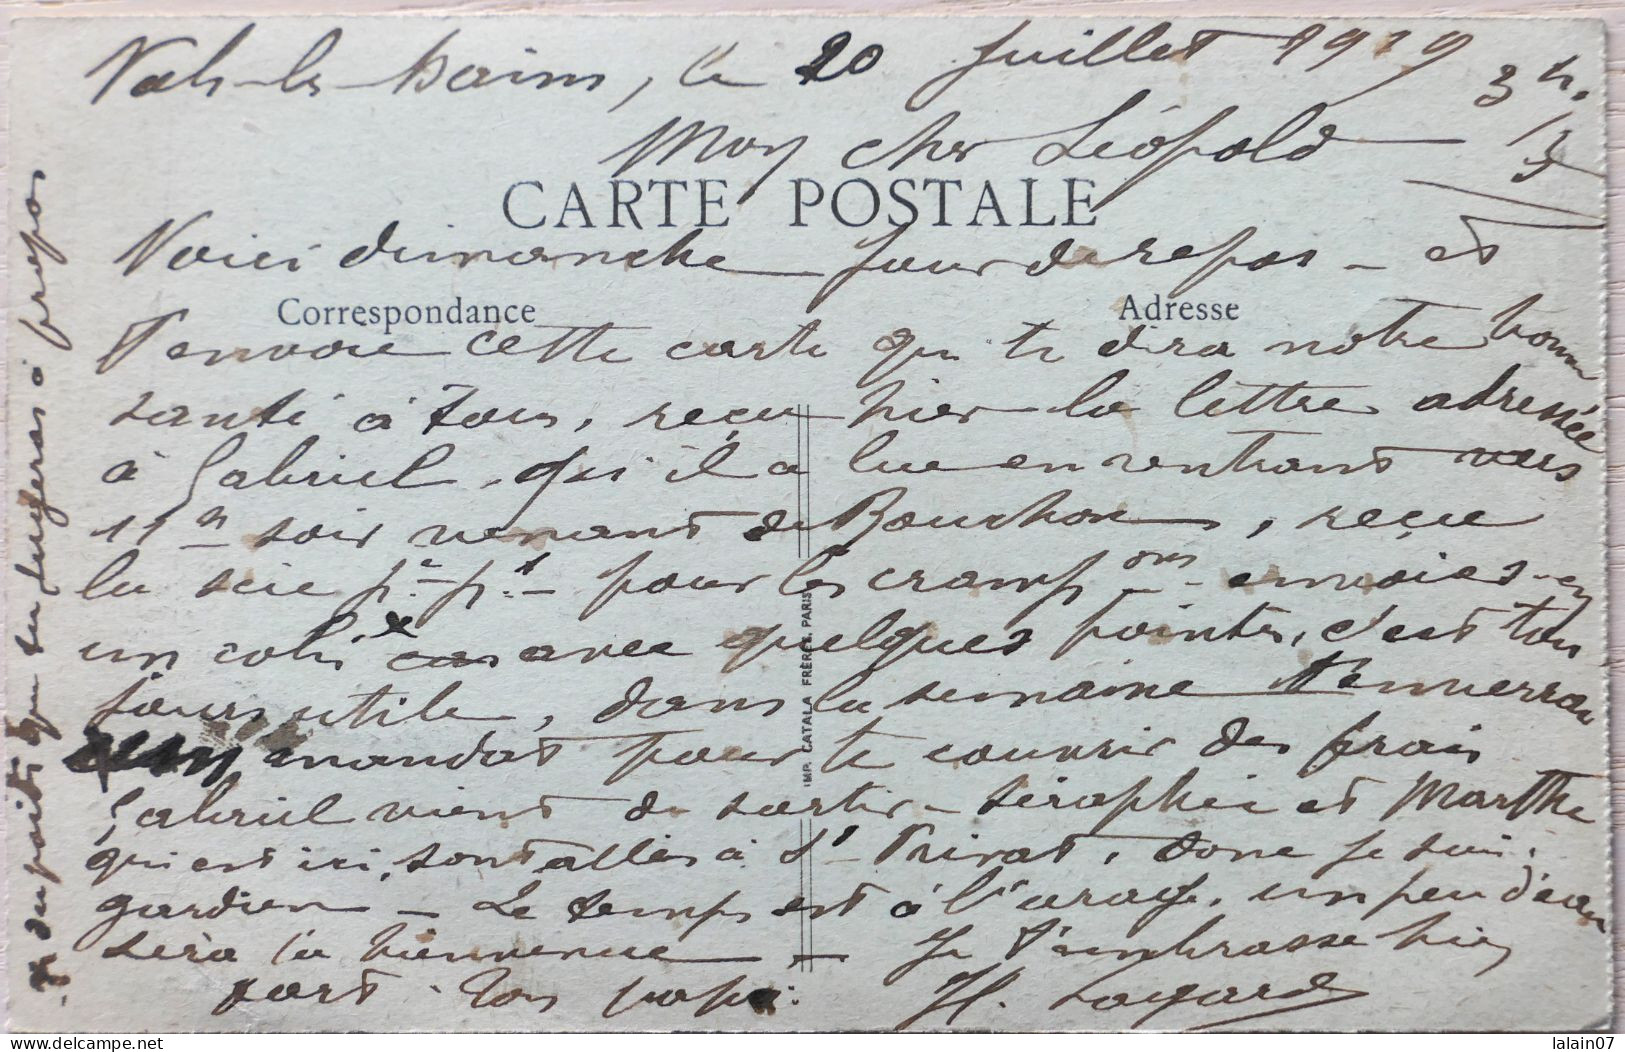 Vals-les-Bains, le 20 Juillet 1919
3 h.
Mon cher Léopold
CARTE POSTALE
Voici dimanche jour de repos - et
Correspondance
Adresse
t'envoie cette carte qui te dira notre bonne
santé à tous, reçu hier la lettre adressée
à Gabriel, qu'il a lue en rentrant vers
11 h soir venant de Bourbon, reçue
la scie pour les crampons envoies-en
un colis avec quelques pointes, c'est tou
jours utile, dans la semaine t'enverrai
mandat pour te couvrir des frais
Gabriel vient de sortir - Séraphie et Marthe
qui est ici, sont allés à St Privat, donc je suis
gardien - Le temps est à l'orage, un peu d'eau
sera la bienvenue - Je t'embrasse bien
fort. Ton papa. H.
x du poids que tu jugeras à propos
IMP. CATALA FRÈRES, PARIS
lalain07